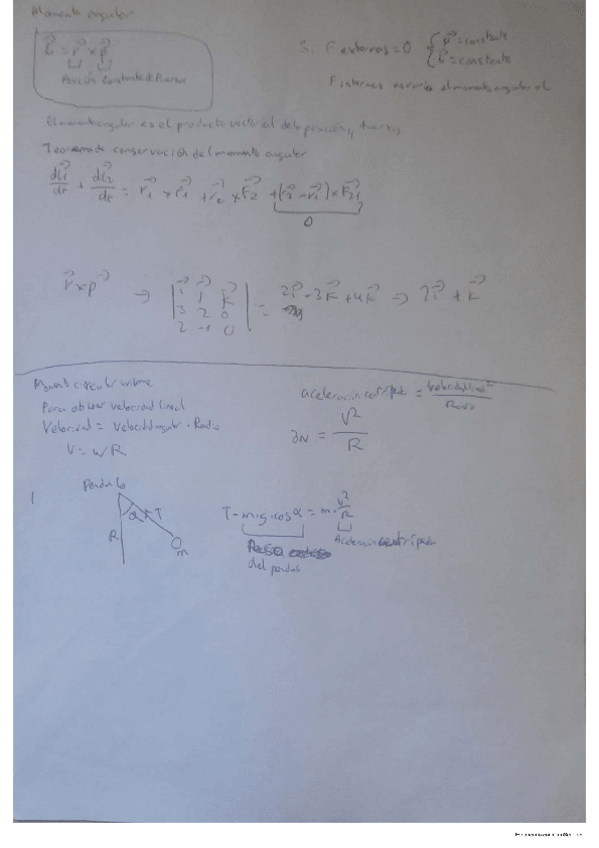 Momento angular
L = r x p
Posición Constante de fuerzas
Si F externas = 0 { p = constante
L = constante
F internas no varía el momento angular
El momento angular es el producto vectorial de la posición y fuerzas
Teorema de conservación del momento angular
dL1/dt + dL2/dt = r1 x F1 + r2 x F2 + (r2 - r1) x F21
0
r x p → | i j k
3 2 0
2 -1 0 | = 2i - 3k + 4k ⇒ 2i + k
Movimiento circular uniforme
Para obtener velocidad lineal
Velocidad = velocidad angular · Radio
V = wR
aceleración centrípeta = velocidad lineal² / Radio
aN = V² / R
Pendulo
α T
R
m
T - m·g·cosα = m· v²/R
Aceleración centrípeta
del pendulo